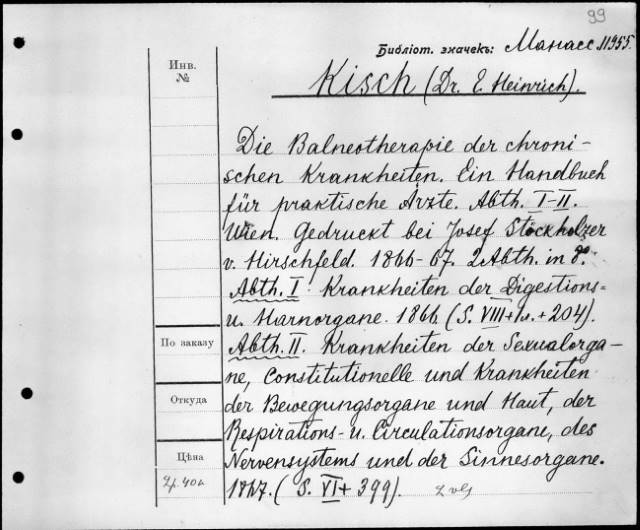 99
Библіот. значекъ: Манасс. 11955.
Инв.
№
Kisch (Dr. E. Heinrich).
Die Balneotherapie der chroni-
schen Krankheiten. Ein Handbuch
für praktische Ärzte. Abth. I-II.
Wien. Gedruckt bei Josef Stöckholzer
v. Hirschfeld. 1866-67. 2 Abth. in 8°.
Abth. I. Krankheiten der Digestions-
u. Harnorgane. 1866 (S. VIII+1л.+204).
По заказу
Abth. II. Krankheiten der Sexualorga-
ne, Constitutionelle und Krankheiten
Откуда
der Bewegungsorgane und Haut, der
Respirations- u. Circulationsorgane, des
Цѣна
Nervensystems und der Sinnesorgane.
2р. 40к
1867. (S. VI + 399).